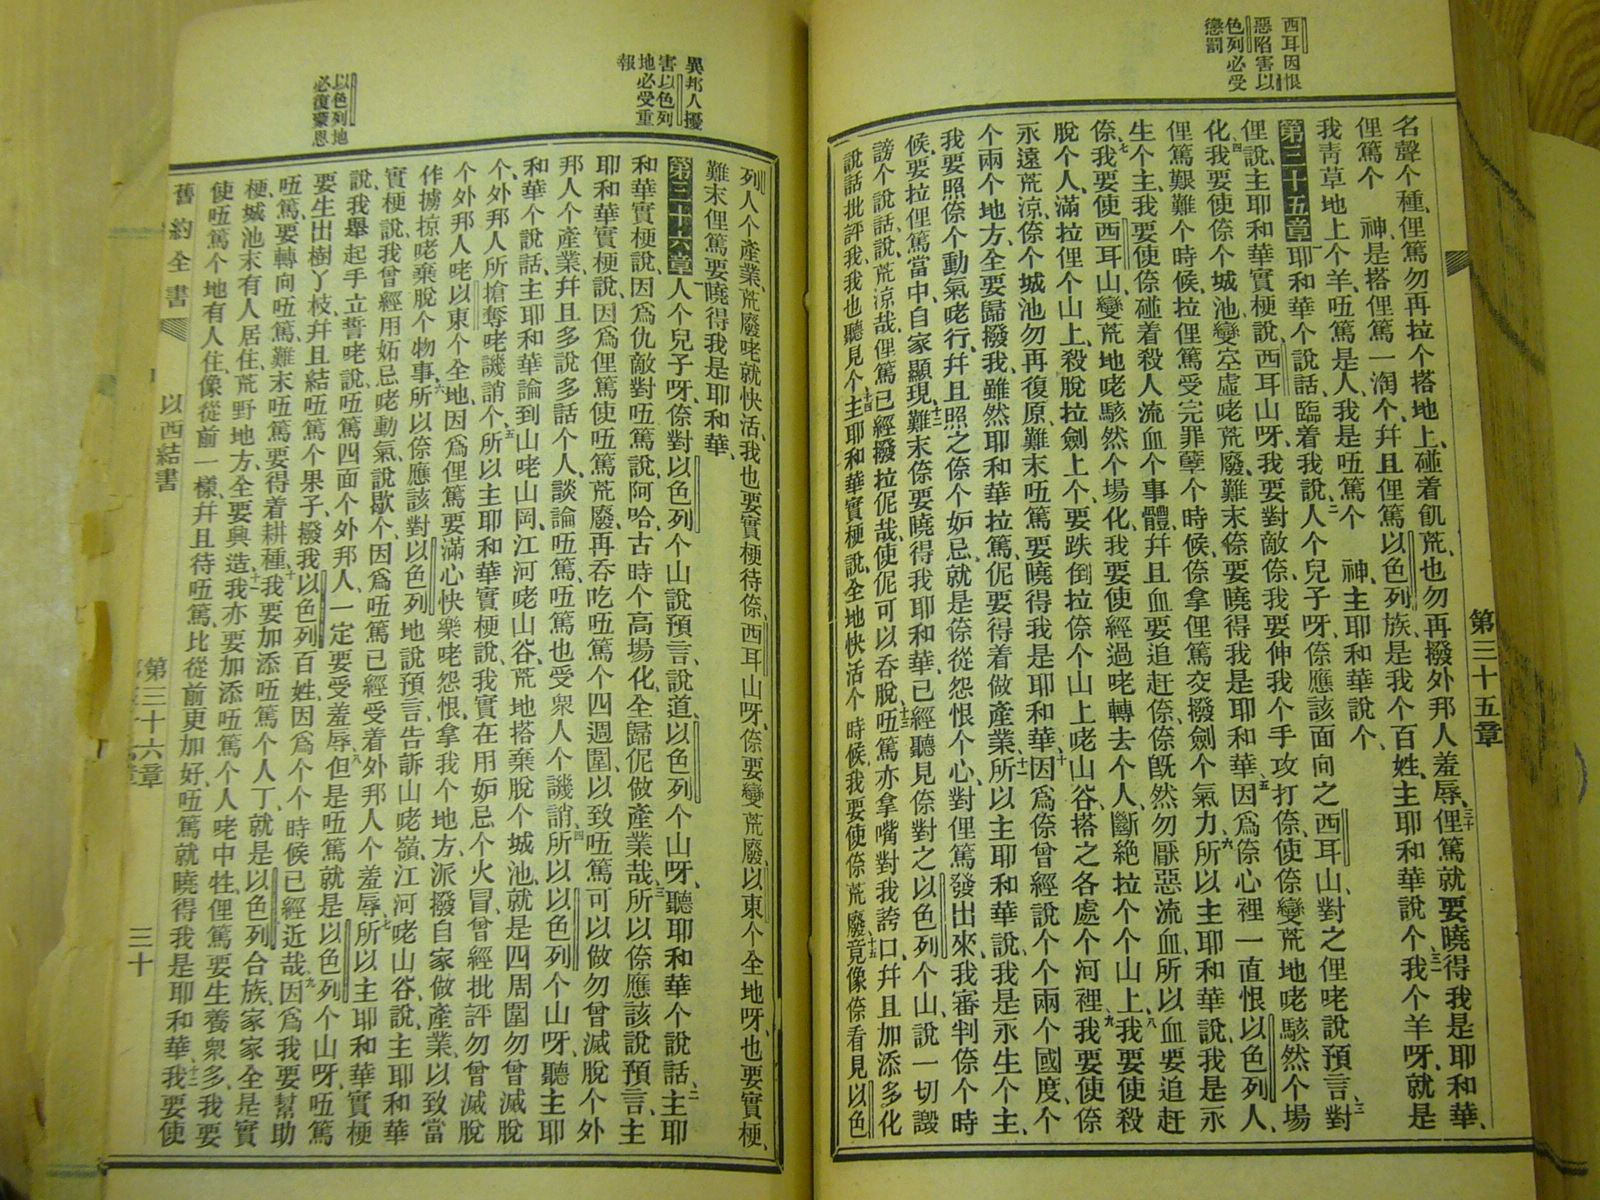 西耳因恨
惡陷害以
色列必受
懲罰
第三十五章
名聲个種、俚篤勿再拉个搭地上、碰着飢荒、也勿再撥外邦人羞辱、三十俚篤就要曉得我是耶和華、
俚篤个　神、是搭俚篤一淘个、幷且俚篤以色列族、是我个百姓、主耶和華說个、三一我个羊呀、就是
我靑草地上个羊、㕶篤是人、我是㕶篤个　神、主耶和華說个、
第三十五章一耶和華个說話、臨着我說、二人个兒子呀、倷應該面向之西耳山、對之俚咾說預言、三對
俚說、主耶和華實梗說、西耳山呀、我要對敵倷、我要伸我个手攻打倷、使倷變荒地咾駭然个場
化、四我要使倷个城池、變空虛咾荒廢、難末倷要曉得我是耶和華、五因爲倷心裡一直恨以色列人、
俚篤艱難个時候、拉俚篤受完罪孽个時候、倷拿俚篤交撥劍个氣力、六所以主耶和華說、我是永
生个主、我要使倷碰着殺人流血个事體、幷且血要追赶倷、倷旣然勿厭惡流血、所以血要追赶
倷、七我要使西耳山變荒地咾駭然个場化、我要使經過咾轉去个人、斷絕拉个个山上、八我要使殺
脫个人、滿拉俚个山上、殺脫拉劍上个、要跌倒拉倷个山上咾山谷、搭之各處个河裡、九我要使倷
永遠荒涼、倷个城池勿再復原、難末㕶篤要曉得我是耶和華、十因爲倷曾經說个个兩个國度、个
个兩个地方、全要歸撥我、雖然耶和華拉篤、伲要得着做產業、十一所以主耶和華說、我是永生个主、
我要照倷个動氣咾行、幷且照之倷个妒忌、就是倷從怨恨个心、對俚篤發出來、我審判倷个時
候、要拉俚篤當中、自家顯現、十二難末倷要曉得我耶和華、已經聽見倷對之以色列个山、說一切譭
謗个說話、說、荒涼哉、俚篤已經撥拉伲哉、使伲可以吞脫、十三㕶篤亦拿嘴對我誇口、幷且加添多化
說話批評我、我也聽見个、十四主耶和華實梗說、全地快活个時候、我要使倷荒廢、十五竟像倷看見以色
異邦人擾
害以色列
地必受重
報
以色列地
必復蒙恩
列人个產業、荒廢咾就快活、我也要實梗待倷、西耳山呀、倷要變荒廢、以東个全地呀、也要實梗、
難末俚篤要曉得我是耶和華、
第三十六章一人个兒子呀、倷對以色列个山說預言、說道、以色列个山呀、聽耶和華个說話、二主耶
和華實梗說、因爲仇敵對㕶篤說、阿哈、古時个高場化、全歸伲做產業哉、三所以倷應該說預言、主
耶和華實梗說、因爲俚篤使㕶篤荒廢、再吞吃㕶篤个四週圍、以致㕶篤可以做勿曾滅脫个外
邦人个產業、幷且多說多話个人、談論㕶篤、㕶篤也受衆人个譏誚、四所以以色列个山呀、聽主耶
和華个說話、主耶和華論到山咾山岡、江河咾山谷、荒地搭棄脫个城池、就是四周圍勿曾滅脫
个、外邦人所搶奪咾譏誚个、五所以主耶和華實梗說、我實在用妒忌个火冒、曾經批評勿曾滅脫
个外邦人咾以東个全地、因爲俚篤要滿心快樂咾怨恨、拿我个地方、派撥自家做產業、以致當
作擄掠咾棄脫个物事、六所以倷應該對以色列地說預言、吿訴山咾嶺、江河咾山谷、說、主耶和華
實梗說、我曾經用妬忌咾動氣說歇个、因爲㕶篤已經受着外邦人个羞辱、七所以主耶和華實梗
說、我舉起手立誓咾說、㕶篤四面个外邦人、一定要受羞辱、八但是㕶篤就是以色列个山呀、㕶篤
要生出樹丫枝、幷且結㕶篤个果子、撥我以色列百姓、因爲个个時候已經近哉、九因爲我要幫助
㕶篤、要轉向㕶篤、難末㕶篤要得着耕種、十我要加添㕶篤个人丁、就是以色列合族、家家全是實
梗、城池末有人居住、荒野地方、全要興造、十一我亦要加添㕶篤个人咾中牲、俚篤要生養衆多、我要
使㕶篤个地有人住、像從前一樣、幷且待㕶篤、比從前更加好、㕶篤就曉得我是耶和華、十二我要使
舊約全書　以西結書　第三十六章　三十